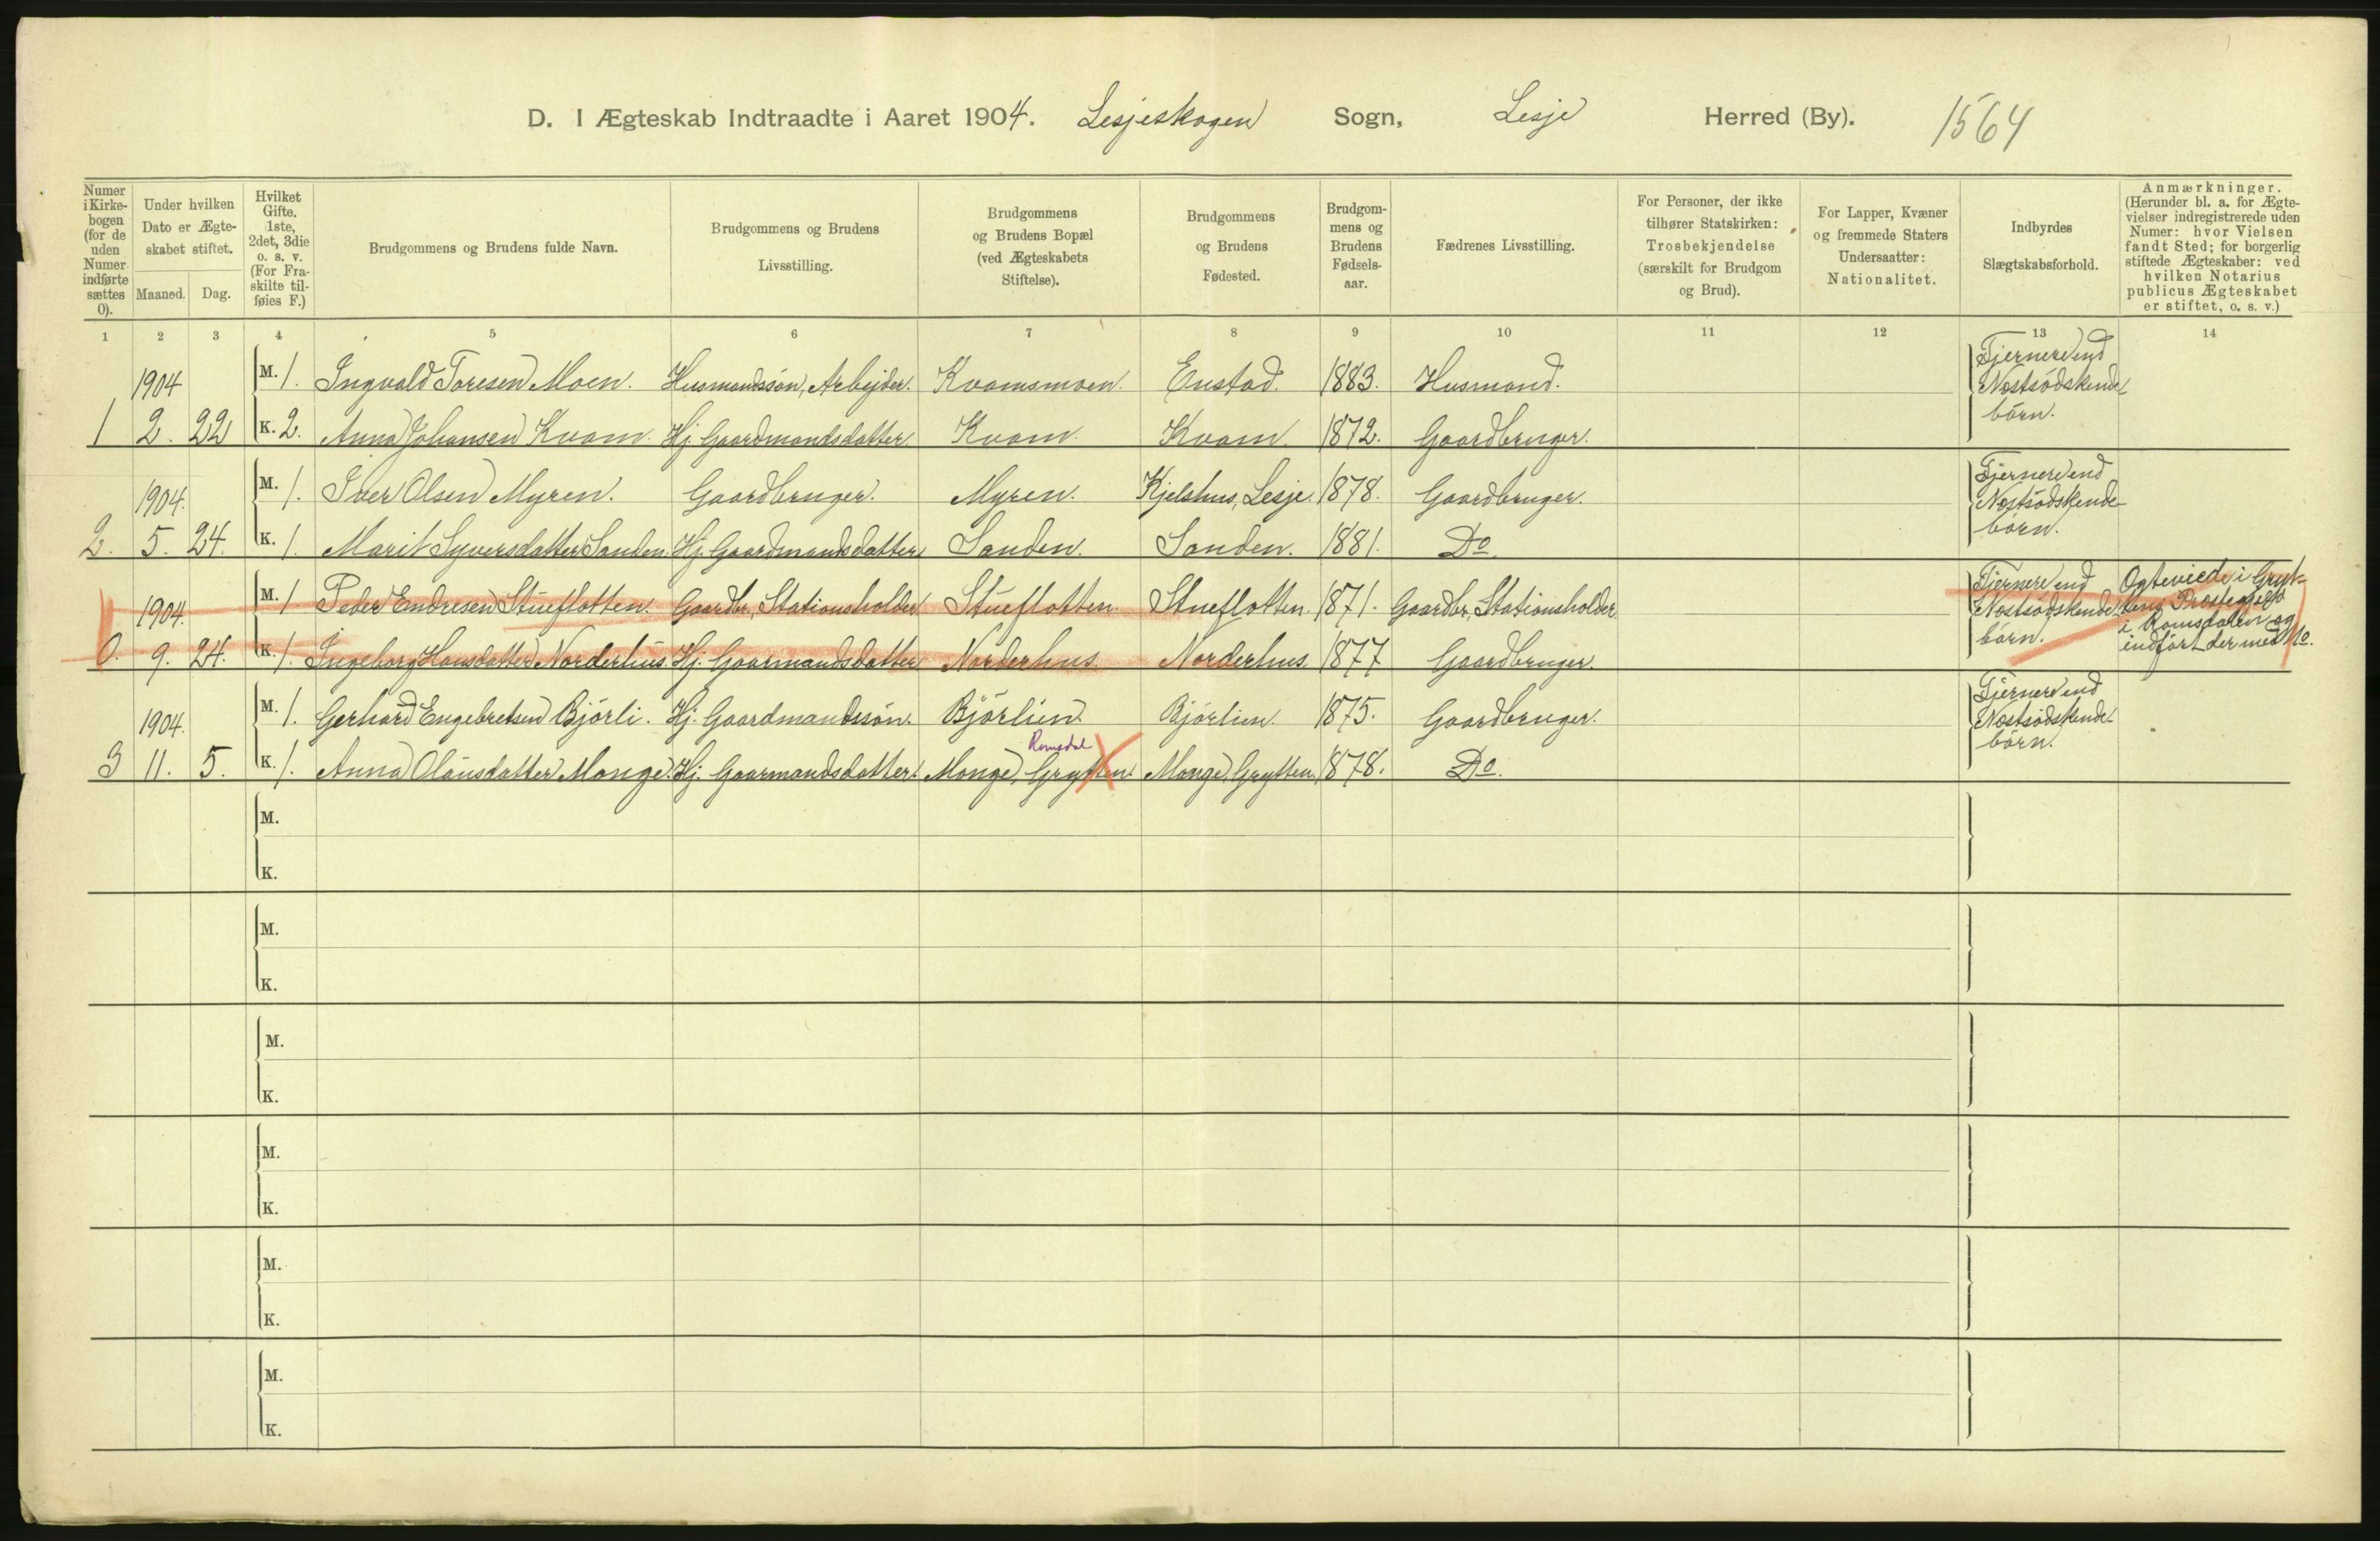 D. I Ægteskab Indtraadte i Aaret 1904. Lesjeskogen Sogn, Lesje Herred (By). 1564
Numer i Kirkebogen (for de uden Numer indførte sættes 0).
Under hvilken Dato er Ægteskabet stiftet.
Maaned. Dag.
Hvilket Gifte. 1ste, 2det, 3die o. s. v. (For Fraskilte tilføies F.)
Brudgommens og Brudens fulde Navn.
Brudgommens og Brudens Livsstilling.
Brudgommens og Brudens Bopæl (ved Ægteskabets Stiftelse).
Brudgommens og Brudens Fødested.
Brudgommens og Brudens Fødselsaar.
Fædrenes Livsstilling.
For Personer, der ikke tilhører Statskirken: Trosbekjendelse (særskilt for Brudgom og Brud).
For Lapper, Kvæner og fremmede Staters Undersaatter: Nationalitet.
Indbyrdes Slægtskabsforhold.
Anmærkninger. (Herunder bl. a. for Ægtevielser indregistrerede uden Numer: hvor Vielsen fandt Sted; for borgerlig stiftede Ægteskaber: ved hvilken Notarius publicus Ægteskabet er stiftet, o. s. v.)
1 2 3 4 5 6 7 8 9 10 11 12 13 14
1904 M. 1. Ingvald Toresen Moen. Husmandssön, Arbejder. Kvamsmoen. Enstad. 1883. Husmand. Fjernere end Næstsödskendebörn.
1 2. 22 K. 2. Anna Johansen Kvam. Hj. Gaardmandsdatter. Kvam. Kvam. 1872. Gaardbruger.
1904. M. 1. Iver Olsen Myren. Gaardbruger. Myren. Kjelshus, Lesje. 1878. Gaardbruger. Fjernere end Næstsödskendebörn.
2. 5. 24. K. 1. Marit Syversdatter Sanden. Hj. Gaardmandsdatter. Sanden. Sanden. 1881. Do.
1904. M. 1 Peder Endresen Stueflotten. Gaardbr, Stationsholder. Stueflotten. Stueflotten. 1871. Gaardbr, Stationsholder. Fjernere end Næstsödskendebörn. Ægteviede i Gryttens Prestegjeld i Romsdalen og indfört der med No.
0. 9. 24. K. 1. Ingeborg Hansdatter Norderhus. Hj. Gaarmandsdatter. Norderhus. Norderhus. 1877 Gaardbruger.
1904. M. 1. Gerhard Engebretsen Bjórli. Hj. Gaardmandssön. Bjórlien. Bjórlien. 1875. Gaardbruger. Fjernere end Næstsödskendebörn.
Romsdal
3 11. 5. K. 1. Anna Olausdatter Monge. Hj. Gaarmandsdatter. Monge, Grytten. Monge, Grytten. 1878. Do.
M.
K.
M.
K.
M.
K.
M.
K.
M.
K.
M.
K.